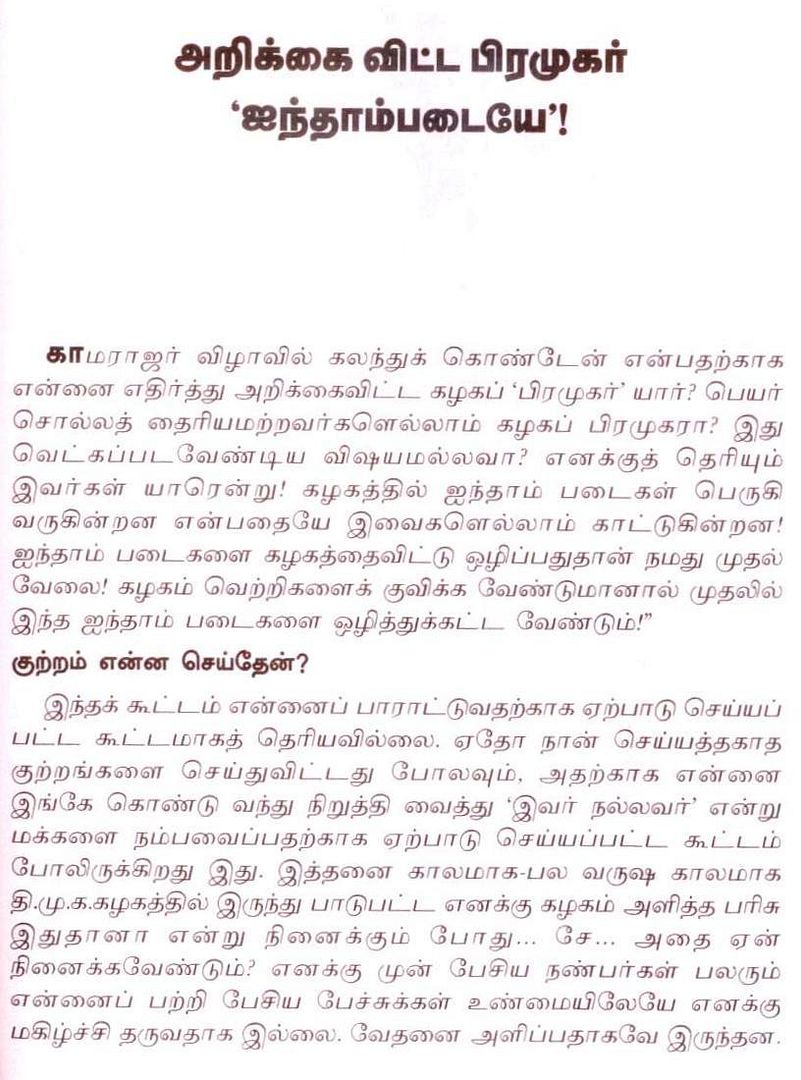 அறிக்கை விட்ட பிரமுகர்
‘ஐந்தாம்படையே’!
காமராஜர் விழாவில் கலந்துக் கொண்டேன் என்பதற்காக
என்னை எதிர்த்து அறிக்கைவிட்ட கழகப் ‘பிரமுகர்’ யார்? பெயர்
சொல்லத் தைரியமற்றவர்களெல்லாம் கழகப் பிரமுகரா? இது
வெட்கப்படவேண்டிய விஷயமல்லவா? எனக்குத் தெரியும்
இவர்கள் யாரென்று! கழகத்தில் ஐந்தாம் படைகள் பெருகி
வருகின்றன என்பதையே இவைகளெல்லாம் காட்டுகின்றன!
ஐந்தாம் படைகளை கழகத்தைவிட்டு ஒழிப்பதுதான் நமது முதல்
வேலை! கழகம் வெற்றிகளைக் குவிக்க வேண்டுமானால் முதலில்
இந்த ஐந்தாம் படைகளை ஒழித்துக்கட்ட வேண்டும்!”
குற்றம் என்ன செய்தேன்?
இந்தக் கூட்டம் என்னைப் பாராட்டுவதற்காக ஏற்பாடு செய்யப்
பட்ட கூட்டமாகத் தெரியவில்லை. ஏதோ நான் செய்யத்தகாத
குற்றங்களை செய்துவிட்டது போலவும், அதற்காக என்னை
இங்கே கொண்டு வந்து நிறுத்தி வைத்து ‘இவர் நல்லவர்’ என்று
மக்களை நம்பவைப்பதற்காக ஏற்பாடு செய்யப்பட்ட கூட்டம்
போலிருக்கிறது இது. இத்தனை காலமாக-பல வருஷ காலமாக
தி.மு.க.கழகத்தில் இருந்து பாடுபட்ட எனக்கு கழகம் அளித்த பரிசு
இதுதானா என்று நினைக்கும் போது... சே... அதை ஏன்
நினைக்கவேண்டும்? எனக்கு முன் பேசிய நண்பர்கள் பலரும்
என்னைப் பற்றி பேசிய பேச்சுக்கள் உண்மையிலேயே எனக்கு
மகிழ்ச்சி தருவதாக இல்லை. வேதனை அளிப்பதாகவே இருந்தன.